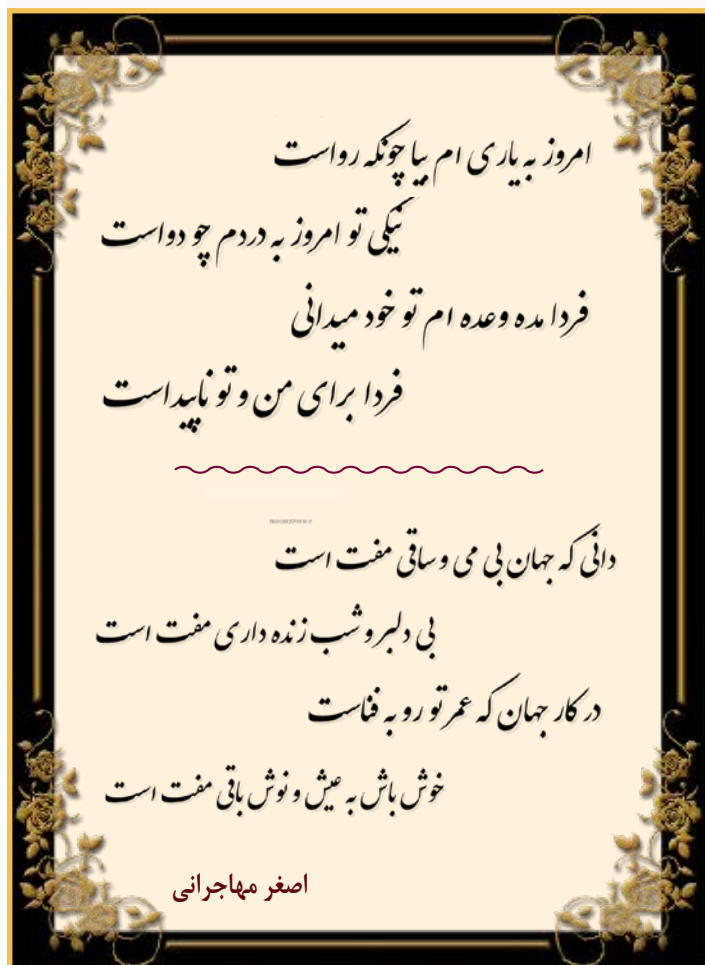 امروز به یاری ام بیا چونکه رواست
نیکی تو امروز به دردم چو دواست
فردا مده وعده ام تو خود میدانی
فردا برای من و تو ناپیداست
دانی که جهان بی می و ساقی مفت است
بی دلبر و شب زنده داری مفت است
در کار جهان که عمر تو رو به فناست
خوش باش به عیش و نوش باقی مفت است
اصغر مهاجرانی